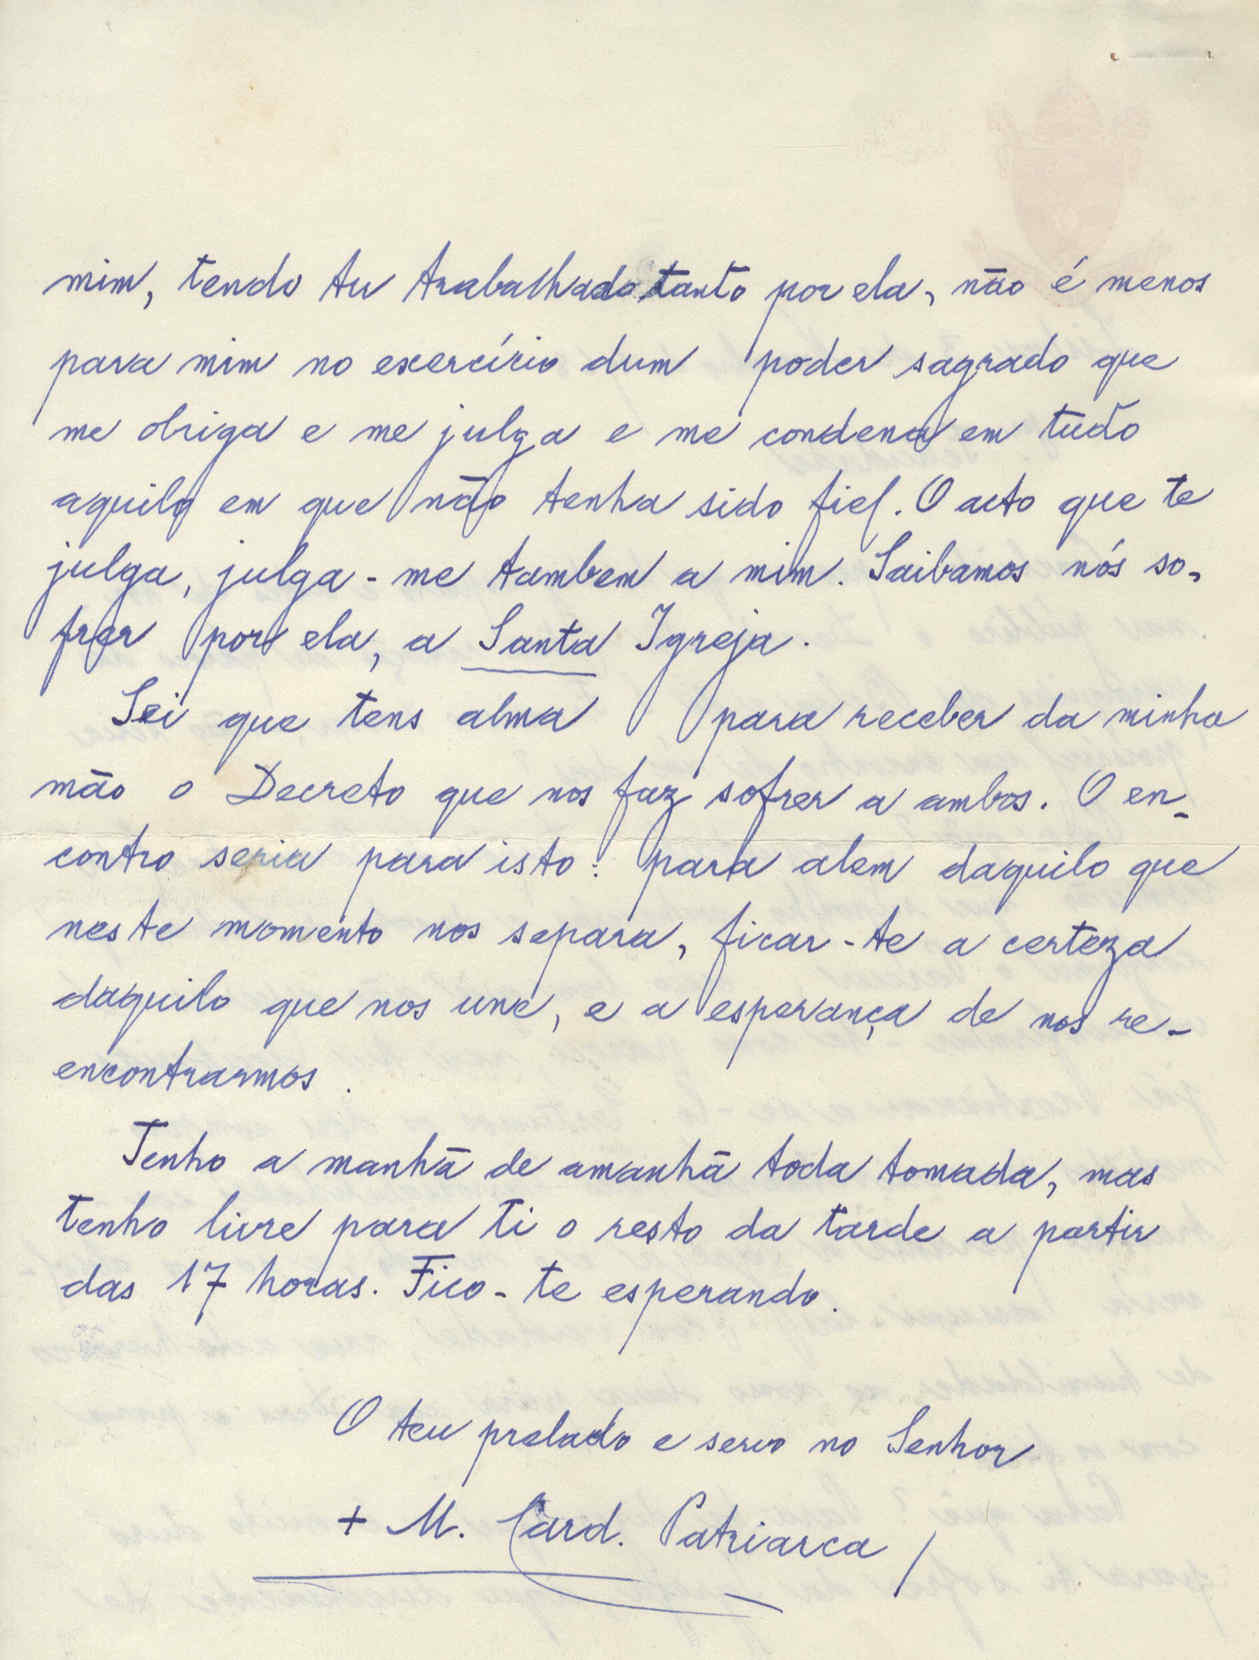 mim, tendo tu trabalhado tanto por ela, não é menos
para mim no exercício dum poder sagrado que
me obriga e me julga e me condena em tudo
aquilo em que não tenha sido fiel. O acto que te
julga, julga-me tambem a mim. Saibamos nós so-
frer por ela, a Santa Igreja.
Sei que tens alma para receber da minha
mão o Decreto que nos faz sofrer a ambos. O en-
contro seria para isto: para alem daquilo que
neste momento nos separa, ficar-te a certeza
daquilo que nos une, e a esperança de nos re-
encontrarmos.
Tenho a manhã de amanhã toda tomada, mas
tenho livre para ti o resto da tarde a partir
das 17 horas. Fico-te esperando.
O teu prelado e servo no Senhor
+ M. Card. Patriarca